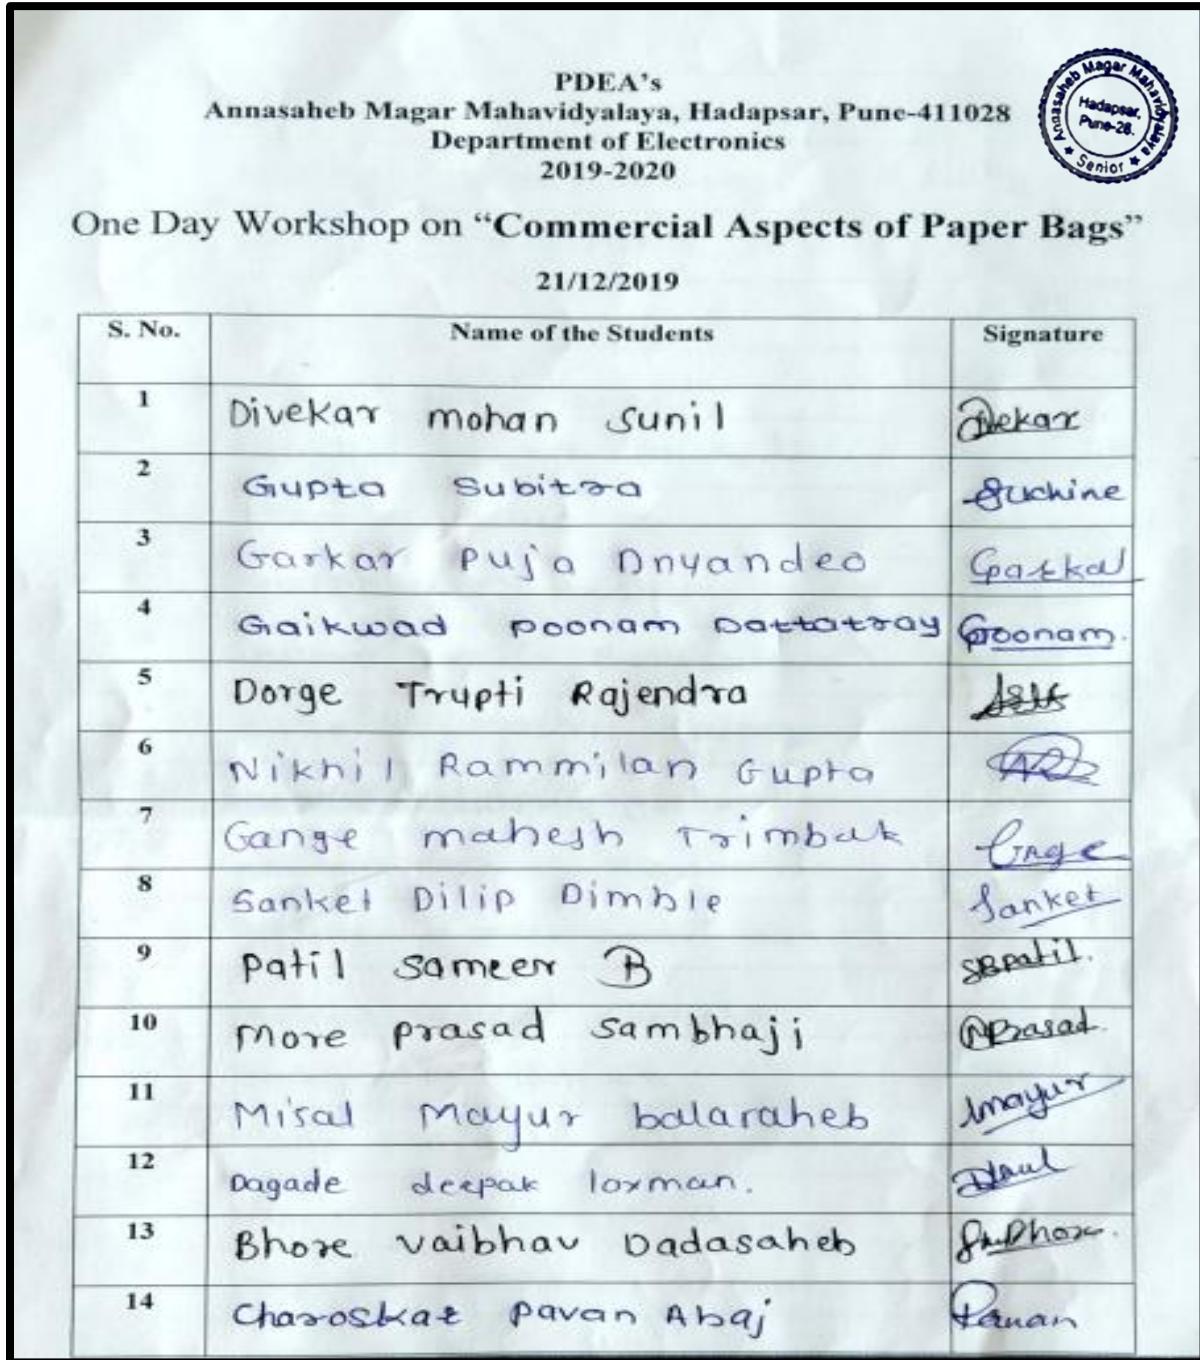 PDEA's
Annasaheb Magar Mahavidyalaya, Hadapsar, Pune-411028
Department of Electronics
2019-2020
Annasaheb Magar Mahavidyalaya
Hadapsar,
Pune-28.
★ Senior ★
One Day Workshop on “Commercial Aspects of Paper Bags”
21/12/2019
S. No. Name of the Students Signature
1 Divekar mohan sunil
2 Gupta Subitra
3 Garkar Puja Dnyandeo Garkar
4 Gaikwad poonam Dattatray Poonam.
5 Dorge Trupti Rajendra
6 Nikhil Rammilan Gupta
7 Gange mahesh Trimbak
8 Sanket Dilip Dimble Sanket
9 Patil sameer B SBpatil.
10 More prasad sambhaji Prasad.
11 Misal Mayur balaraheb mayur
12 Dagade deepak laxman.
13 Bhore vaibhav Dadasaheb
14 Charoskar pavan Abaj Pavan